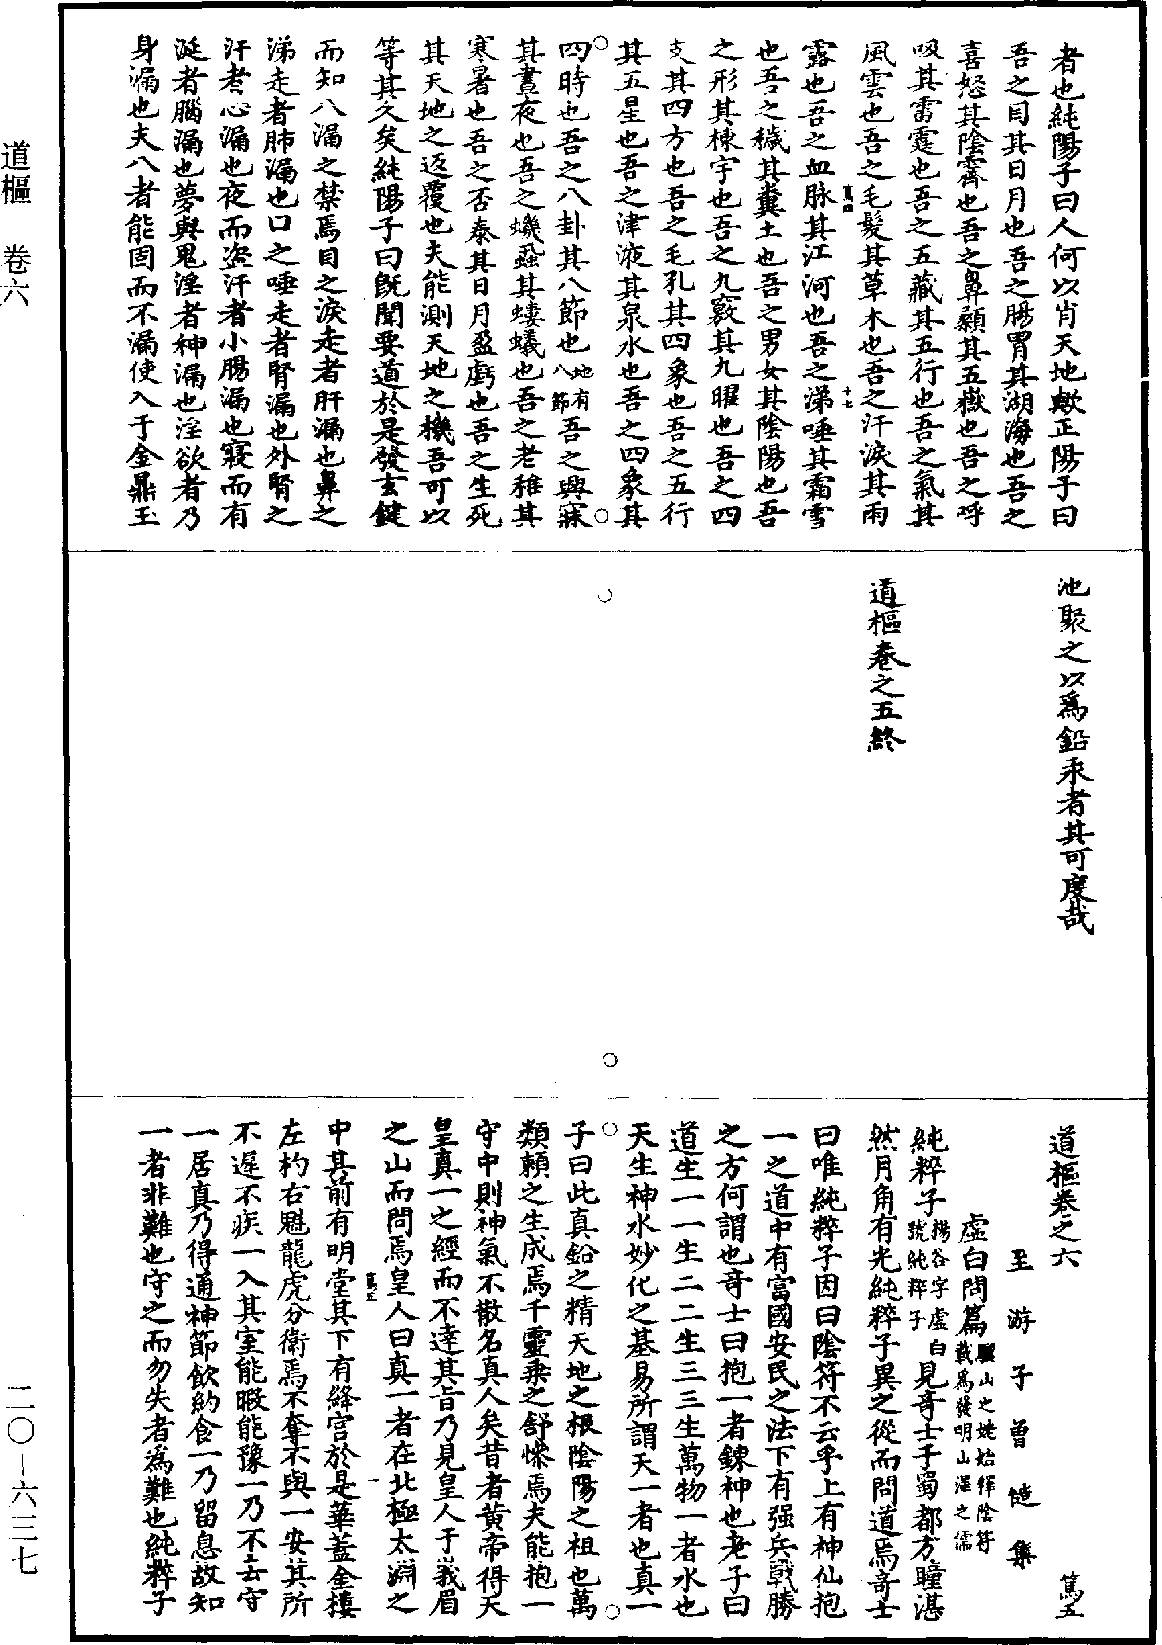 者也純陽子曰人何以肖天地歟正陽子曰
吾之目其日月也吾之腸胃其湖海也吾之
喜怒其陰霽也吾之鼻顙其五嶽也吾之呼
吸其雷霆也吾之五藏其五行也吾之氣其
風雲也吾之毛髮其草木也吾之汗淚其雨
十七
露也吾之血脉其江河也吾之涕唾其霜雪
也吾之穢其糞土也吾之男女其陰陽也吾
之形其棟宇也吾之九竅其九曜也吾之四
支其四方也吾之毛孔其四象也吾之五行
其五星也吾之津液其泉水也吾之四象其
四時也吾之八卦其八節也地有八節吾之興寐
其晝夜也吾之蟣蝨其螻蟻也吾之老稚其
寒暑也吾之否泰其日月盈虧也吾之生死
其天地之返覆也夫能測天地之機吾可以
等其久矣純陽子曰旣聞要道於是發玄鍵
而知八漏之禁焉目之淚走者肝漏也鼻之
涕走者肺漏也口之唾走者腎漏也外腎之
汗者心漏也夜而盜汗者小腸漏也寢而有
涎者腦漏也夢與鬼淫者神漏也淫欲者乃
身漏也夫八者能固而不漏使入于金鼎玉
池聚之以爲鉛汞者其可度哉
道樞卷之五終
道樞卷之六 篤五
至游子曾慥集
虛白問篇驪山之姥始繹陰符載爲發明山澤之濡
純粹子楊谷字虛白號純粹子見奇士于蜀都方瞳湛
然月角有光純粹子異之從而問道焉奇士
曰唯純粹子因曰陰符不云乎上有神仙抱
一之道中有富國安民之法下有强兵戰勝
之方何謂也奇士曰抱一者鍊神也老子曰
道生一一生二二生三三生萬物一者水也
天生神水妙化之基易所謂天一者也真一
子曰此真鉛之精天地之根陰陽之祖也萬
類賴之生成焉千靈乘之舒慘焉夫能抱一
守中則神氣不散名真人矣昔者黃帝得天
皇真一之經而不達其旨乃見皇人于峩眉
之山而問焉皇人曰真一者在北極太淵之
中其前有明堂其下有絳宮於是華蓋金樓
左杓右魁龍虎分衛焉不奪不與一安其所
不遲不疾一入其室能暇能豫一乃不去守
一居真乃得通神節飲約食一乃留息故知
一者非難也守之而勿失者爲難也純粹子
道樞 卷六
二〇-六三七